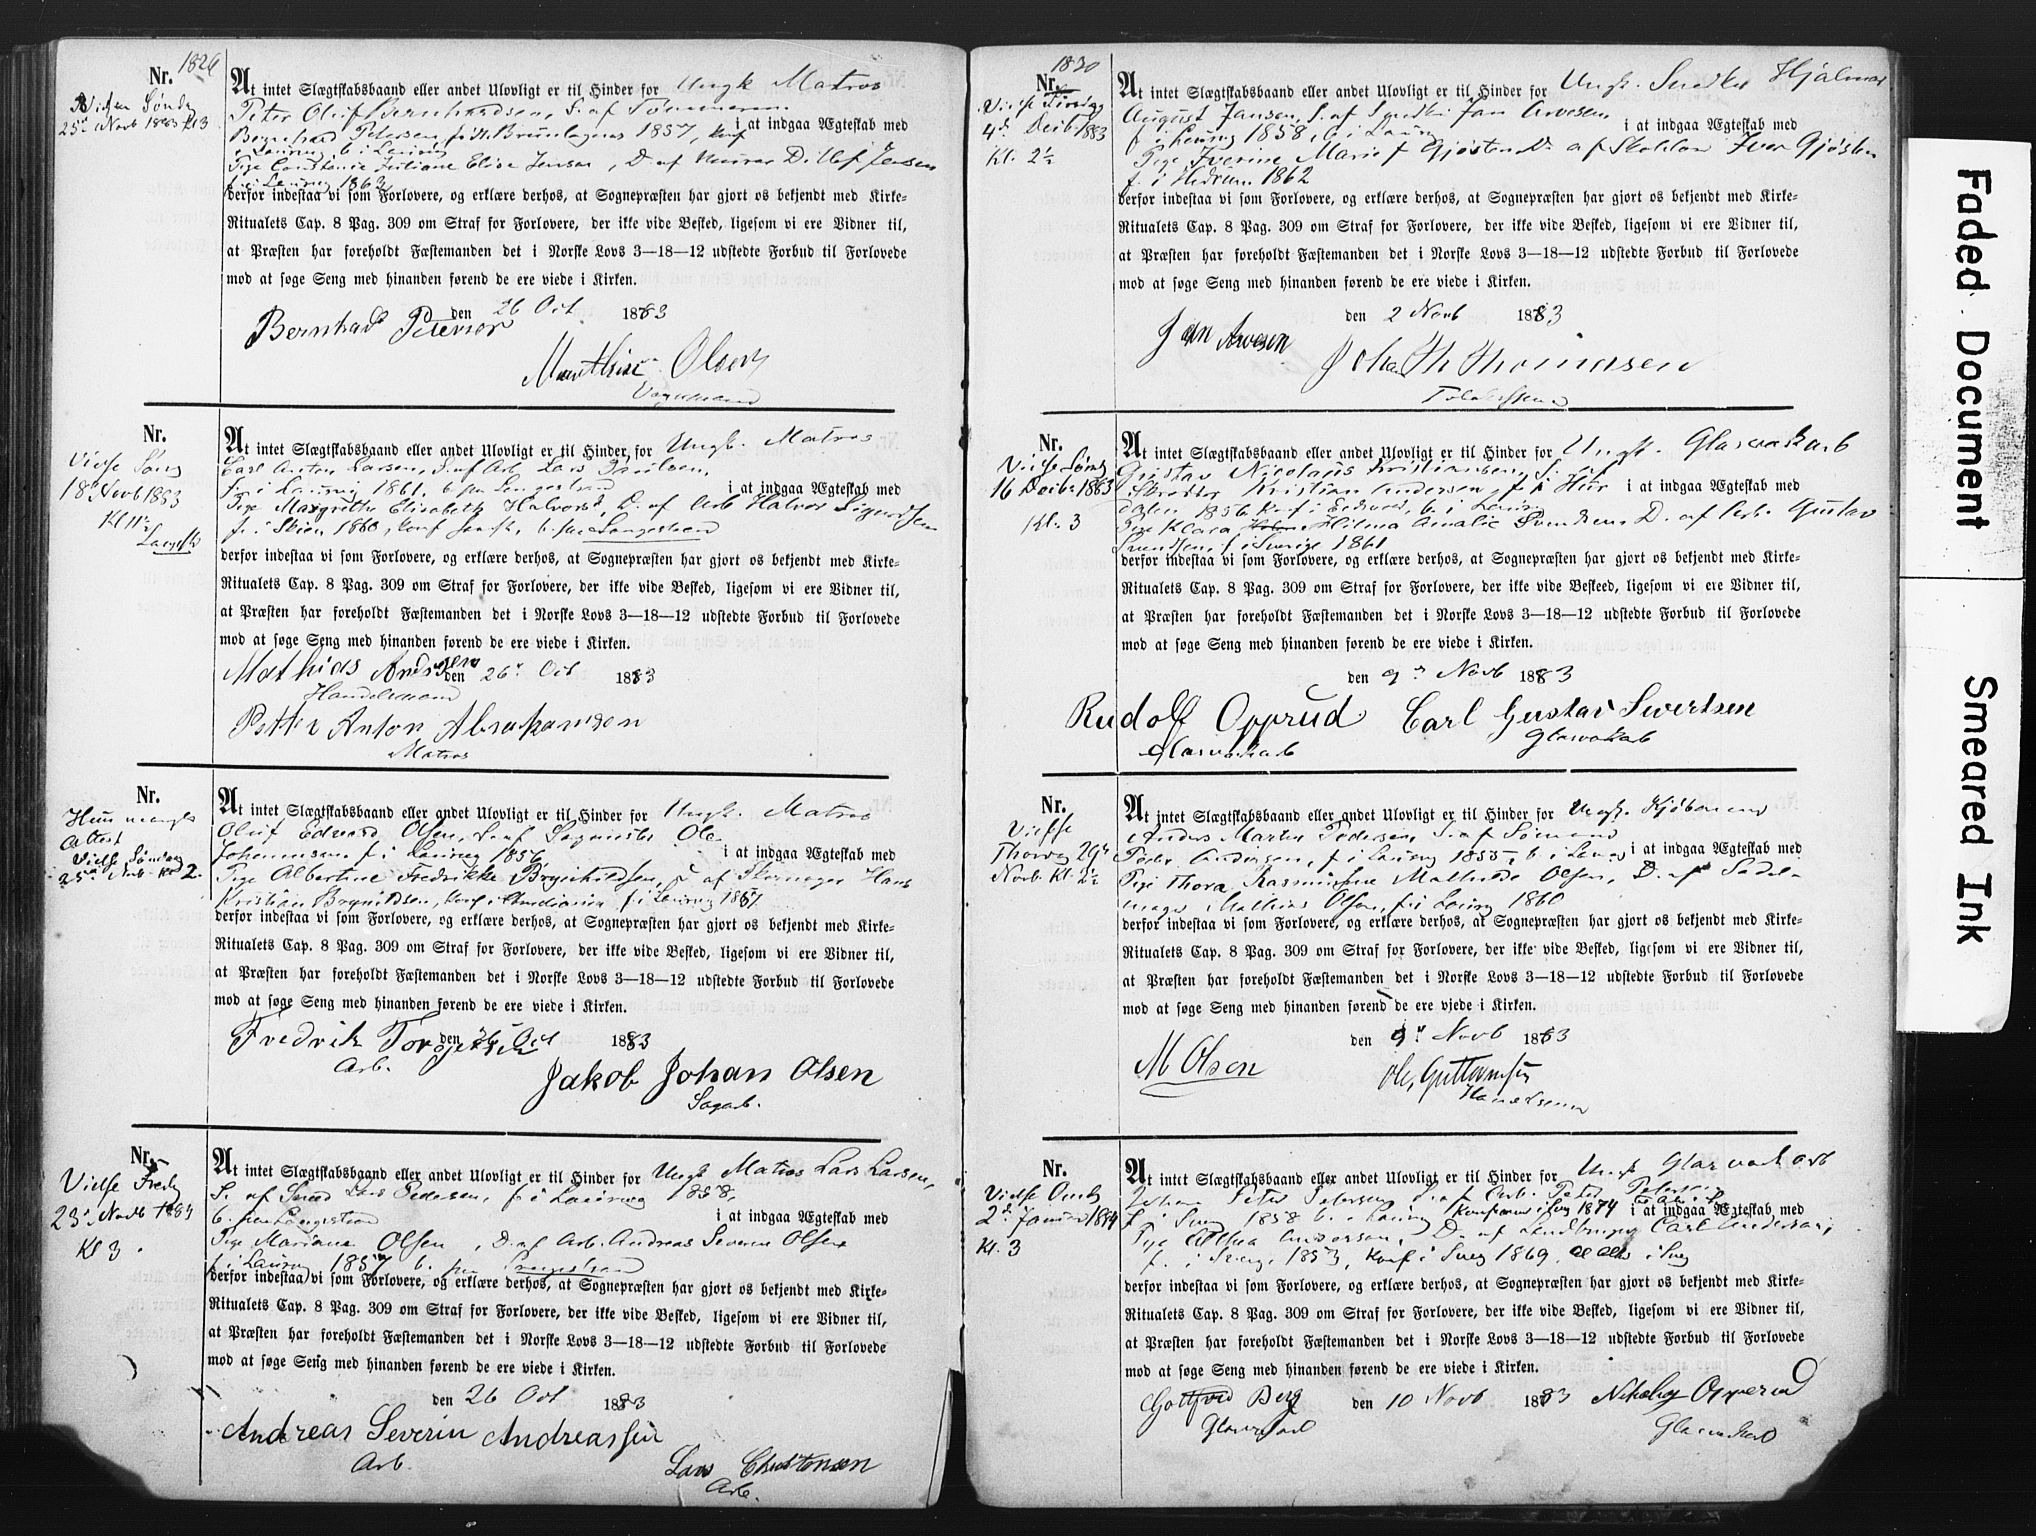 Nr. 1826
Vielse Søndag
25de Novb 1883 Kl 3
At intet Slægtskabsbaand eller andet Ulovligt er til Hinder for Ungk. Matros
Peter Oluf Bernhardsen, S. af Tømmerm.
Bernhard Petersen, f. i Brunlagnæs 1857, konf
i at indgaa Ægteskab med
i Laurvig, b. i Laurvig
Pige Constance Juliane Elise Jensen, D. af Murer Ditlef Jensen
f. i Laurvig 1863
derfor indestaa vi som Forlovere, og erklære derhos, at Sognepræsten har gjort os bekjendt med Kirke-
Ritualets Cap. 8 Pag. 309 om Straf for Forlovere, der ikke vide Besked, ligesom vi ere Vidner til,
at Præsten har foreholdt Fæstemanden det i Norske Lovs 3—18—12 udstedte Forbud til Forlovede
mod at søge Seng med hinanden førend de ere viede i Kirken.
den 26 Oct 1883
Bernhard Petersen
Mathias Olsen
Vognmand
Nr.
Vielse Søndag
18de Novb 1883
Kl 11½
Langest
At intet Slægtskabsbaand eller andet Ulovligt er til Hinder for Ungk. Matros
Carl Anton Larsen, S. af Arb. Lars Paulsen,
f. i Laurvig 1861, b. paa Langestrand
i at indgaa Ægteskab med
Pige Margrethe Elisabeth Halvorsd, D. af Arb Halvor Sigurdsen
f. i Skien 1860, konf samst., b. paa Langestrand
derfor indestaa vi som Forlovere, og erklære derhos, at Sognepræsten har gjort os bekjendt med Kirke-
Ritualets Cap. 8 Pag. 309 om Straf for Forlovere, der ikke vide Besked, ligesom vi ere Vidner til,
at Præsten har foreholdt Fæstemanden det i Norske Lovs 3—18—12 udstedte Forbud til Forlovede
mod at søge Seng med hinanden førend de ere viede i Kirken.
den 26 Oct 1883
Mathias Andersen
Handelsmand
Petter Anton Abrahamsen
Matros
Nr.
Hun mangler
Attest
Vielse Søndag
25de Novb. Kl 2.
At intet Slægtskabsbaand eller andet Ulovligt er til Hinder for Ungk. Matros
Oluf Edvard Olsen, S. af Sagmester Ole
Johannesen, f. i Laurvig 1856
i at indgaa Ægteskab med
Pige Albertine Fredrikke Brynildsen, D. af Skomager Hans
Kristian Brynildsen, konf i Christiania f. i Laurvig 1857
derfor indestaa vi som Forlovere, og erklære derhos, at Sognepræsten har gjort os bekjendt med Kirke-
Ritualets Cap. 8 Pag. 309 om Straf for Forlovere, der ikke vide Besked, ligesom vi ere Vidner til,
at Præsten har foreholdt Fæstemanden det i Norske Lovs 3—18—12 udstedte Forbud til Forlovede
mod at søge Seng med hinanden førend de ere viede i Kirken.
den 26 Oct 1883
Fredrik Torgersen
Arb.
Jakob Johan Olsen
Sagarb.
Nr.
Vielse Fredag
23de Novb 1883
Kl 3
At intet Slægtskabsbaand eller andet Ulovligt er til Hinder for Ungk Matros Lars Larsen,
S. af Smed Lars Pedersen, f. i Laurvig 1858,
b. paa Langestrand
i at indgaa Ægteskab med
Pige Mariane Olsen, D. af Arb. Andreas Severin Olsen
f. i Laurvig 1857 b. paa Langestrand
derfor indestaa vi som Forlovere, og erklære derhos, at Sognepræsten har gjort os bekjendt med Kirke-
Ritualets Cap. 8 Pag. 309 om Straf for Forlovere, der ikke vide Besked, ligesom vi ere Vidner til,
at Præsten har foreholdt Fæstemanden det i Norske Lovs 3—18—12 udstedte Forbud til Forlovede
mod at søge Seng med hinanden førend de ere viede i Kirken.
den 26 Oct 1883
Andreas Severin Andreassen
Arb.
Lars Christensen
Arb.
Nr. 1830
Vielse Tirsdag
4de Decbr 1883
Kl. 2½
At intet Slægtskabsbaand eller andet Ulovligt er til Hinder for Ungk. Snedker Hjalmar
August Jansen, S. af Snedker Jan Arvesen
i at indgaa Ægteskab med
f. i Laurvig 1858, b. i Laurvig
Pige Iverine Marie Gjøsten D. af Skolelær Iver Gjøsten
f. i Hedrum 1862
derfor indestaa vi som Forlovere, og erklære derhos, at Sognepræsten har gjort os bekjendt med Kirke-
Ritualets Cap. 8 Pag. 309 om Straf for Forlovere, der ikke vide Besked, ligesom vi ere Vidner til,
at Præsten har foreholdt Fæstemanden det i Norske Lovs 3—18—12 udstedte Forbud til Forlovede
mod at søge Seng med hinanden førend de ere viede i Kirken.
den 2 Novb 1883
Jan Arvesen
Joha Th Thomassen
Nr.
Vielse Søndag
16 Decbr 1883
Kl. 3
At intet Slægtskabsbaand eller andet Ulovligt er til Hinder for Ungk. Glasværkarb
Gustav Nicolaus Kristiansen, S. af
Skrædder Kristian Andersen, f i Hur
i at indgaa Ægteskab med
dalen 1856 konf i Eidsvold, b. i Laurv
Pige Klara Hilma Amalie Svendsen D. af Arb. Gustav
Svendsen, f. i Sverige 1861
derfor indestaa vi som Forlovere, og erklære derhos, at Sognepræsten har gjort os bekjendt med Kirke-
Ritualets Cap. 8 Pag. 309 om Straf for Forlovere, der ikke vide Besked, ligesom vi ere Vidner til,
at Præsten har foreholdt Fæstemanden det i Norske Lovs 3—18—12 udstedte Forbud til Forlovede
mod at søge Seng med hinanden førend de ere viede i Kirken.
den 9de Novb 1883
Rudolf Opprud Carl Gustav Sivertsen
Glasværkarb Glasværkarb
Nr.
Vielse
Thorsdag 29de
Novb. Kl. 2½
At intet Slægtskabsbaand eller andet Ulovligt er til Hinder for Ungk. Kjøbmand
Anders Martin Pedersen S. af Sømand
Peder Andersen, f i Laurvig 1855, b. i Laurvig
i at indgaa Ægteskab med
Pige Thora Rasmusine Mathilde Olsen, D. af Sadel-
mager Mathias Olsen, f. i Laurvig 1860
derfor indestaa vi som Forlovere, og erklære derhos, at Sognepræsten har gjort os bekjendt med Kirke-
Ritualets Cap. 8 Pag. 309 om Straf for Forlovere, der ikke vide Besked, ligesom vi ere Vidner til,
at Præsten har foreholdt Fæstemanden det i Norske Lovs 3—18—12 udstedte Forbud til Forlovede
mod at søge Seng med hinanden førend de ere viede i Kirken.
den 9de Novb 1883
M Olsen
Ole Guttormsen
Handelsmand
Nr.
Vielse Onsdag
2de Januar 1884
Kl. 3
At intet Slægtskabsbaand eller andet Ulovligt er til Hinder for Ungk Glasværkarb
Johan Peter Petersen S. af Arb. Peter Petersen
f. i Sverig 1858 b. i Laurvig konfirm i Sverig 1874
i at indgaa Ægteskab med
Pige Althea Andersson, D. af Landbruger Carl Andersson,
f. i Sverige 1853, konf i Sverig 1869, i Sverig
derfor indestaa vi som Forlovere, og erklære derhos, at Sognepræsten har gjort os bekjendt med Kirke-
Ritualets Cap. 8 Pag. 309 om Straf for Forlovere, der ikke vide Besked, ligesom vi ere Vidner til,
at Præsten har foreholdt Fæstemanden det i Norske Lovs 3—18—12 udstedte Forbud til Forlovede
mod at søge Seng med hinanden førend de ere viede i Kirken.
Gottfred Berg den 10 Novb 1883 Nikolay Opperud
Glasværkarb Glasværkarb
Faded Document
Smeared Ink